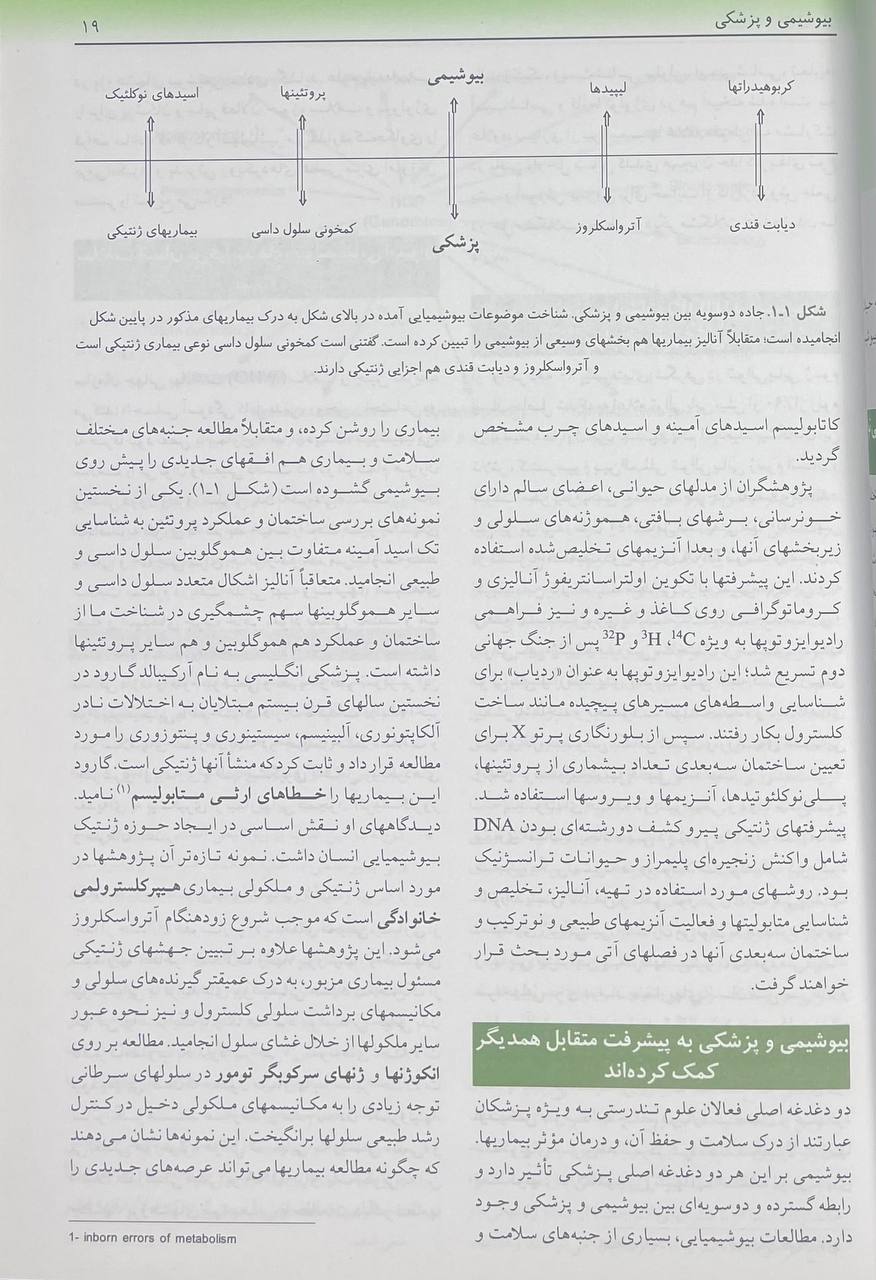 بیوشیمی و پزشکی
۱۹
کربوهیدراتها
لیپیدها
بیوشیمی
پروتئینها
اسیدهای نوکلئیک
دیابت قندی
آترواسکلروز
پزشکی
کمخونی سلول داسی
بیماریهای ژنتیکی
شکل ۱ـ۱. جاده دوسویه بین بیوشیمی و پزشکی. شناخت موضوعات بیوشیمیایی آمده در بالای شکل به درک بیماریهای مذکور در پایین شکل
انجامیده است؛ متقابلاً آنالیز بیماریها هم بخشهای وسیعی از بیوشیمی را تبیین کرده است. گفتنی است کمخونی سلول داسی نوعی بیماری ژنتیکی است
و آترواسکلروز و دیابت قندی هم اجزایی ژنتیکی دارند.
کاتابولیسم اسیدهای آمینه و اسیدهای چرب مشخص
گردید.
پژوهشگران از مدلهای حیوانی، اعضای سالم دارای
خونرسانی، برشهای بافتی، هموژنه‌های سلولی و
زیربخشهای آنها، و بعدا آنزیمهای تخلیص‌شده استفاده
کردند. این پیشرفتها با تکوین اولتراسانتریفوژ آنالیزی و
کروماتوگرافی روی کاغذ و غیره و نیز فراهمی
رادیوایزوتوپها به ویژه ¹⁴C، ³H و ³²P پس از جنگ جهانی
دوم تسریع شد؛ این رادیوایزوتوپها به عنوان «ردیاب» برای
شناسایی واسطه‌های مسیرهای پیچیده مانند ساخت
کلسترول بکار رفتند. سپس از بلورنگاری پرتو X برای
تعیین ساختمان سه‌بعدی تعداد بیشماری از پروتئینها،
پلی‌نوکلئوتیدها، آنزیمها و ویروسها استفاده شد.
پیشرفتهای ژنتیکی پیرو کشف دورشته‌ای بودن DNA
شامل واکنش زنجیره‌ای پلیمراز و حیوانات ترانسژنیک
بود. روشهای مورد استفاده در تهیه، آنالیز، تخلیص و
شناسایی متابولیتها و فعالیت آنزیمهای طبیعی و نوترکیب و
ساختمان سه‌بعدی آنها در فصلهای آتی مورد بحث قرار
خواهند گرفت.
بیوشیمی و پزشکی به پیشرفت متقابل همدیگر
کمک کرده‌اند
دو دغدغه اصلی فعالان علوم تندرستی به ویژه پزشکان
عبارتند از درک سلامت و حفظ آن، و درمان مؤثر بیماریها.
بیوشیمی بر این هر دو دغدغه اصلی پزشکی تأثیر دارد و
رابطه گسترده و دوسویه‌ای بین بیوشیمی و پزشکی وجود
دارد. مطالعات بیوشیمیایی، بسیاری از جنبه‌های سلامت و
بیماری را روشن کرده، و متقابلاً مطالعه جنبه‌های مختلف
سلامت و بیماری هم افقهای جدیدی را پیش روی
بیوشیمی گشوده است (شکل ۱ـ۱). یکی از نخستین
نمونه‌های بررسی ساختمان و عملکرد پروتئین به شناسایی
تک اسید آمینه متفاوت بین هموگلوبین سلول داسی و
طبیعی انجامید. متعاقباً آنالیز اشکال متعدد سلول داسی و
سایر هموگلوبینها سهم چشمگیری در شناخت ما از
ساختمان و عملکرد هم هموگلوبین و هم سایر پروتئینها
داشته است. پزشکی انگلیسی به نام آرکیبالد گارود در
نخستین سالهای قرن بیستم مبتلایان به اختلالات نادر
آلکاپتونوری، آلبینیسم، سیستینوری و پنتوزوری را مورد
مطالعه قرار داد و ثابت کرد که منشأ آنها ژنتیکی است. گارود
این بیماریها را خطاهای ارثی متابولیسم(۱) نامید.
دیدگاههای او نقش اساسی در ایجاد حوزه ژنتیک
بیوشیمیایی انسان داشت. نمونه تازه‌تر آن پژوهشها در
مورد اساس ژنتیکی و ملکولی بیماری هیپرکلسترولمی
خانوادگی است که موجب شروع زودهنگام آترواسکلروز
می‌شود. این پژوهشها علاوه بر تبیین جهشهای ژنتیکی
مسئول بیماری مزبور، به درک عمیقتر گیرنده‌های سلولی و
مکانیسمهای برداشت سلولی کلسترول و نیز نحوه عبور
سایر ملکولها از خلال غشای سلول انجامید. مطالعه بر روی
انکوژنها و ژنهای سرکوبگر تومور در سلولهای سرطانی
توجه زیادی را به مکانیسمهای ملکولی دخیل در کنترل
رشد طبیعی سلولها برانگیخت. این نمونه‌ها نشان می‌دهند
که چگونه مطالعه بیماریها می‌تواند عرصه‌های جدیدی را
1- inborn errors of metabolism